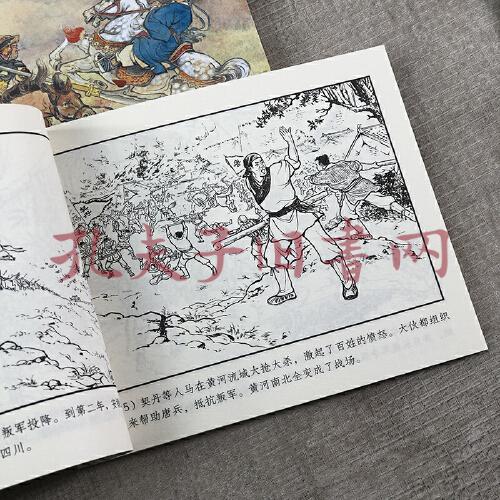 孔夫子旧书网
叛军投降。到第二年,
四川。
5）契丹等人马在黄河流域大抢大杀，激起了百姓的愤怒。大伙都组织
来帮助唐兵，抵抗叛军。黄河南北全变成了战场。